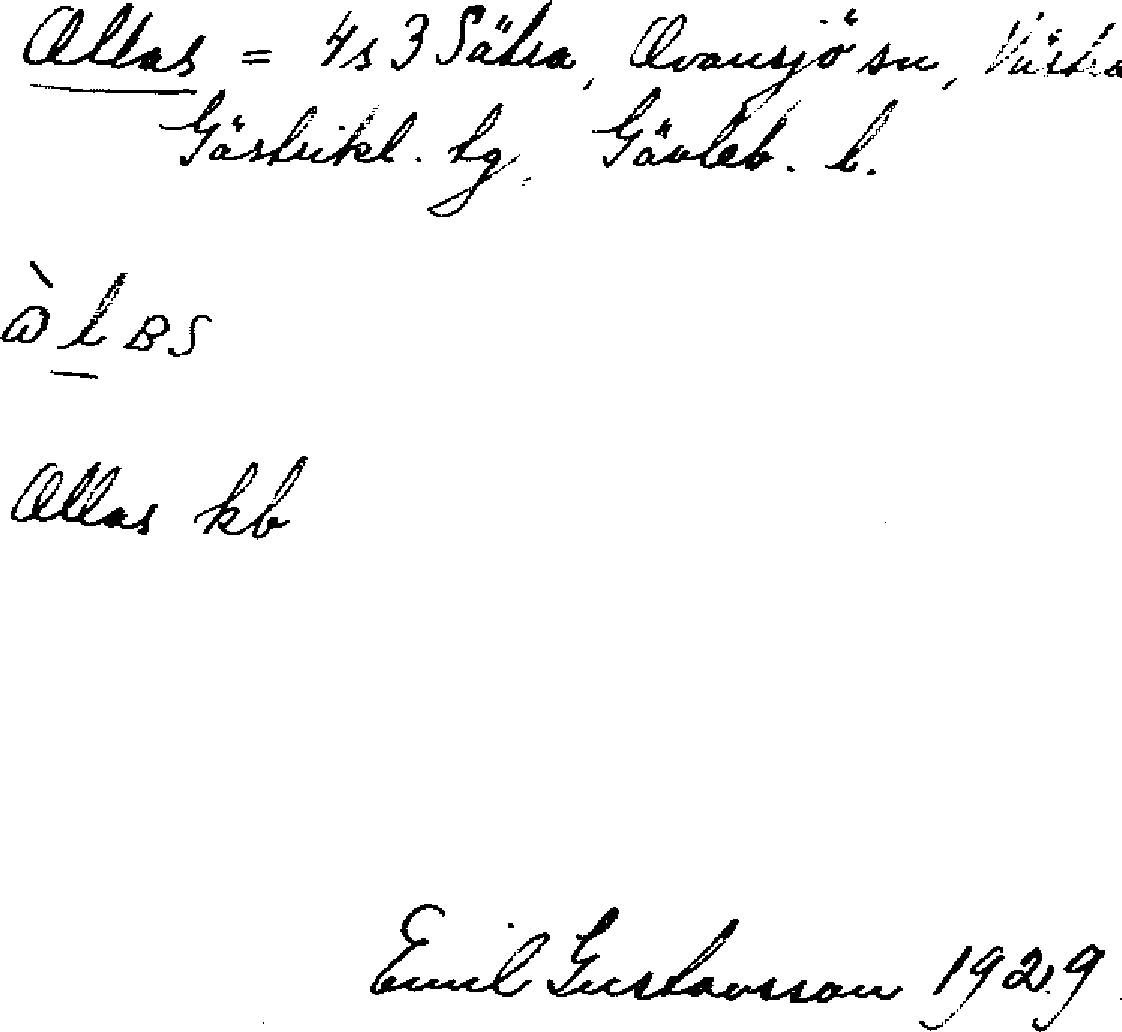 Ollas = 4s 3 Sätra, Ovansjö sn, Västra
Gästrikl. tg, Gävleb. l.
Ollas kb
Emil Gustavsson 1929